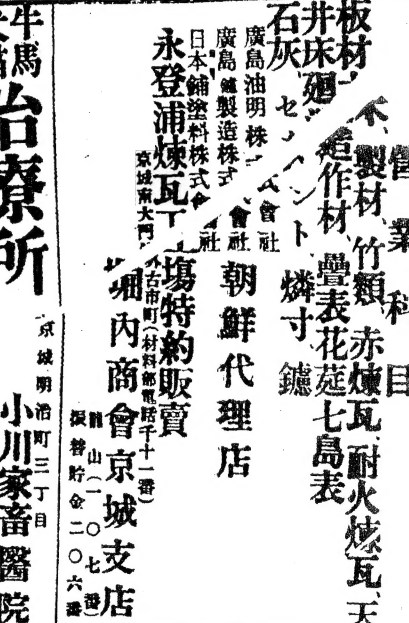 營業科目
木、製材、竹類、赤煉瓦、耐火煉瓦、天
板材
井床廻
造作材、疊表花莚七島表
石灰、セメント、燐寸、鑢
廣島油明株式會社
廣島鑢製造株式會社
日本鋪塗料株式會社
朝鮮代理店
永登浦煉瓦工塲特約販賣
京城南大門外古市町(材料部電話千十一番)
堀內商會京城支店
龍山(一〇七番)
振替貯金二〇六番
牛馬
治療所
京城明治町三丁目
小川家畜醫院